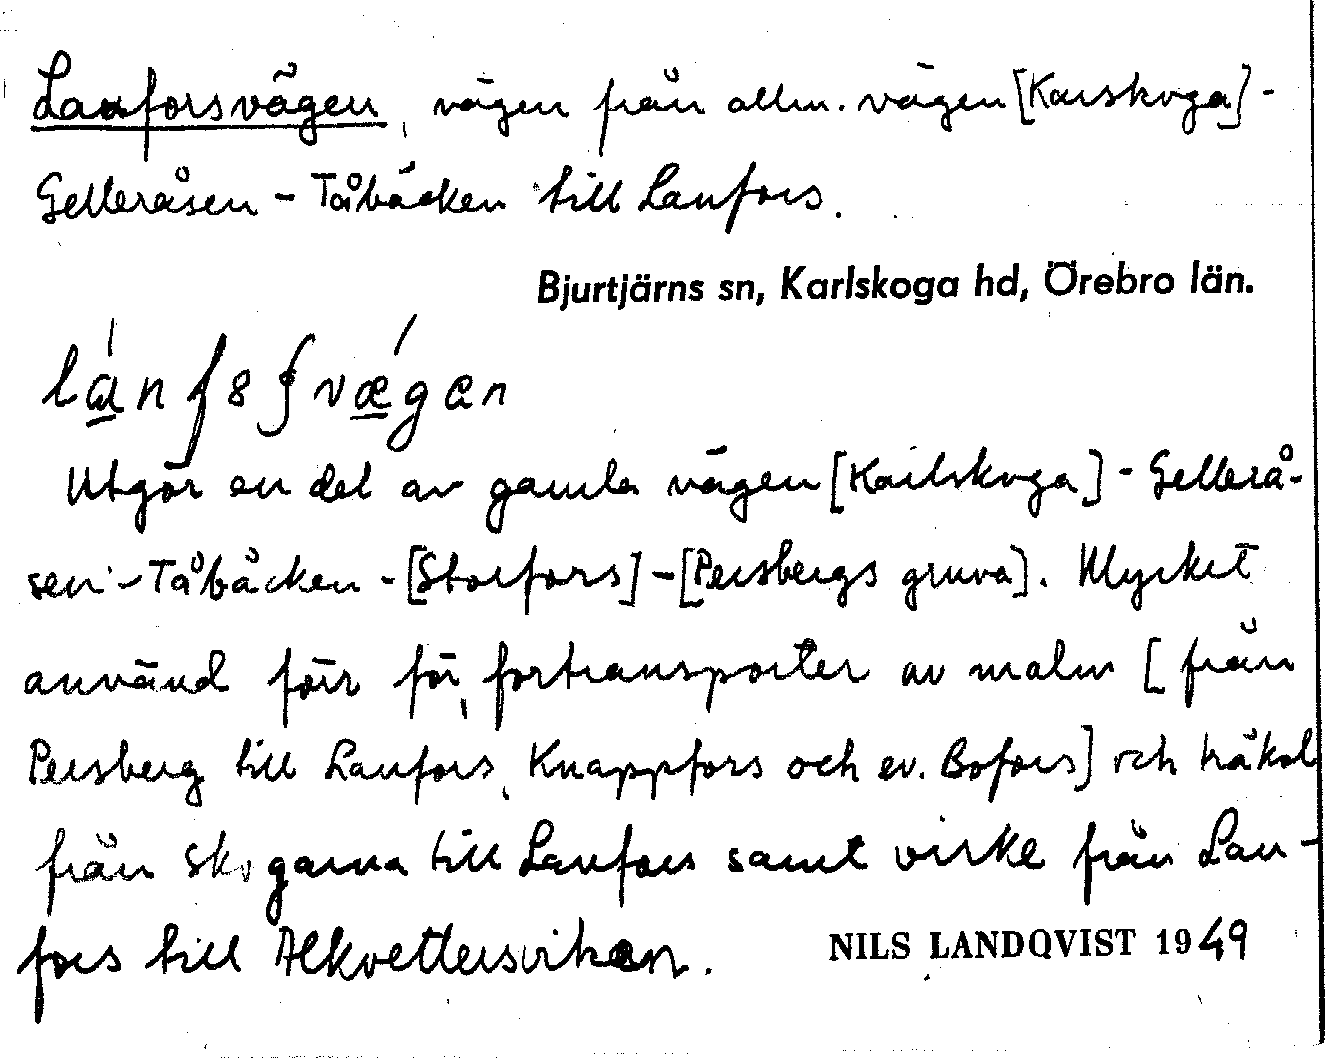 Lanforsvägen, vägen från allm. vägen [Karlskoga] -
Gelleråsen - Tåbäcken till Lanfors.
Bjurtjärns sn, Karlskoga hd, Örebro län.
Utgör en del av gamla vägen [Karlskoga] - Gellerå-
sen - Tåbäcken - [Storfors] - [Persbergs gruva]. Mycket
använd förr för, fortransporter av malm [från
Persberg till Lanfors, Knappfors och ev. Bofors] och träkol
från skogarna till Lanfors samt virke från Lan-
fors till Alkvettersviken.
NILS LANDQVIST 1949